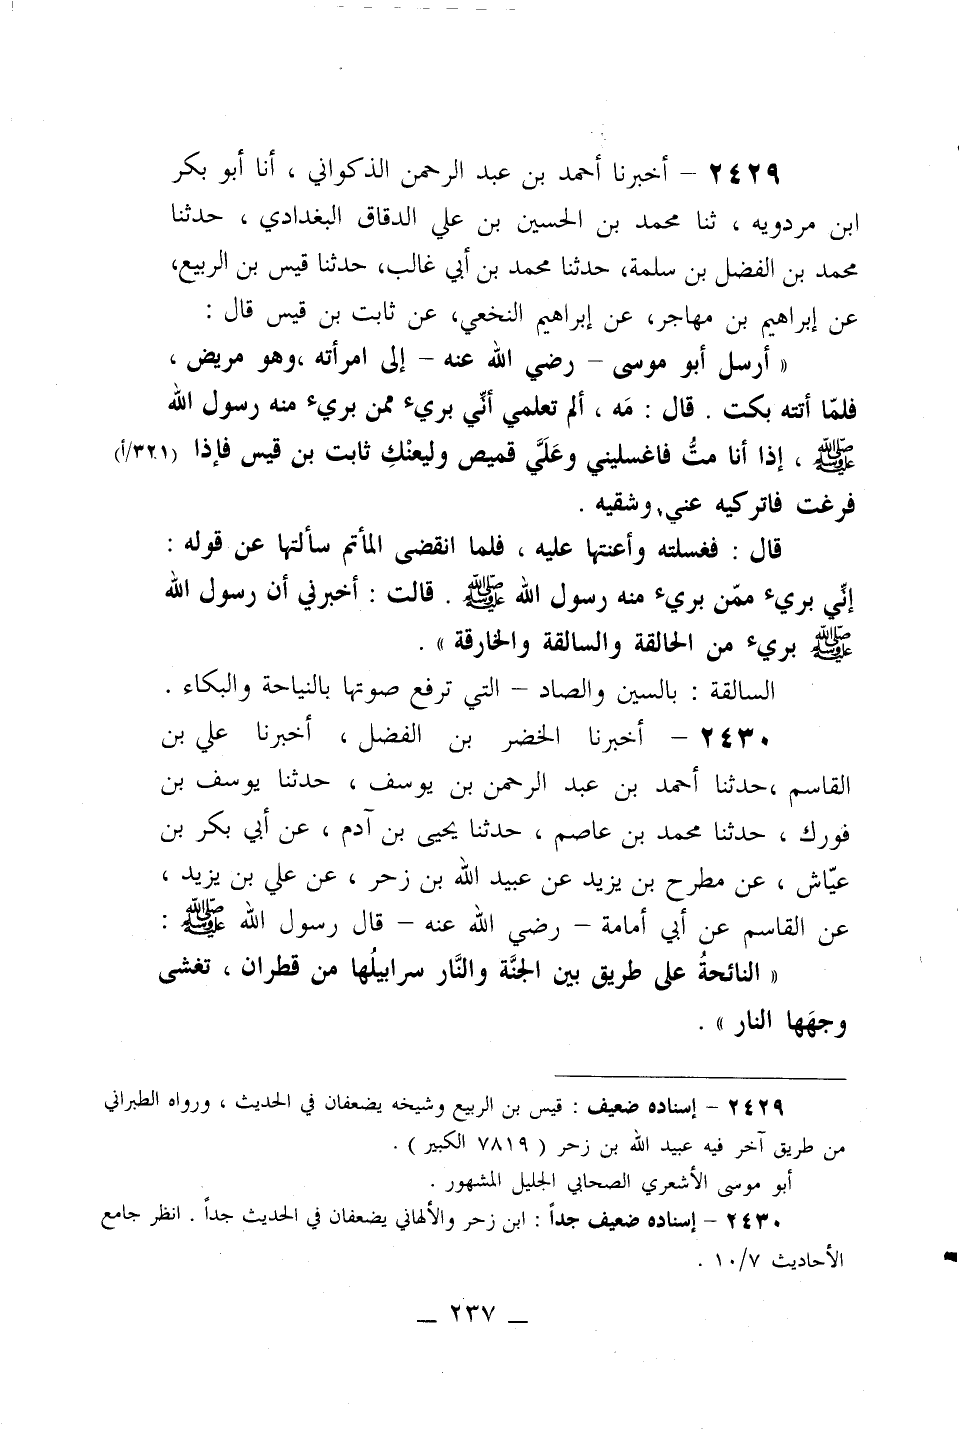 ٢٤٢٩ – أخبرنا أحمد بن عبد الرحمن الذكواني ، أنا أبو بكر
ابن مردويه ، ثنا محمد بن الحسين بن علي الدقاق البغدادي ، حدثنا
محمد بن الفضل بن سلمة، حدثنا محمد بن أبي غالب، حدثنا قيس بن الربيع،
عن إبراهيم بن مهاجر، عن إبراهيم النخعي، عن ثابت بن قيس قال :
« أرسل أبو موسى – رضي الله عنه – إلى امرأته ،وهو مريض ،
فلمّا أتته بكت . قال : مَه ، ألم تعلمي أنّي بريء ممن بريء منه رسول الله
ﷺ ، إذا أنا متُّ فاغسليني وعَلَيَّ قميص وليعنْكِ ثابت بن قيس فإذا (٣٢١/أ)
فرغت فاتركيه عني، وشقيه .
قال : فغسلته وأعنتها عليه ، فلما انقضى المأتم سألتها عن قوله :
إنّي بريء ممّن بريء منه رسول الله ﷺ . قالت : أخبرني أن رسول الله
ﷺ بريء من الحالقة والسالقة والخارقة » .
السالقة : بالسين والصاد – التي ترفع صوتها بالنياحة والبكاء .
٢٤٣٠ – أخبرنا الخضر بن الفضل ، أخبرنا علي بن
القاسم ،حدثنا أحمد بن عبد الرحمن بن يوسف ، حدثنا يوسف بن
فورك ، حدثنا محمد بن عاصم ، حدثنا يحيى بن آدم ، عن أبي بكر بن
عيّاش ، عن مطرح بن يزيد عن عبيد الله بن زحر ، عن علي بن يزيد ،
عن القاسم عن أبي أمامة – رضي الله عنه – قال رسول الله ﷺ :
« النائحةُ على طريق بين الجنَّة والنَّار سرابيلُها من قطران ، تغشى
وجهَها النار » .
٢٤٢٩ – إسناده ضعيف : قيس بن الربيع وشيخه يضعفان في الحديث ، ورواه الطبراني
من طريق آخر فيه عبيد الله بن زحر ( ٧٨١٩ الكبير ) .
أبو موسى الأشعري الصحابي الجليل المشهور .
٢٤٣٠ – إسناده ضعيف جداً : ابن زحر والألهاني يضعفان في الحديث جداً . انظر جامع
الأحاديث ١٠/٧ .
– ٢٣٧ –